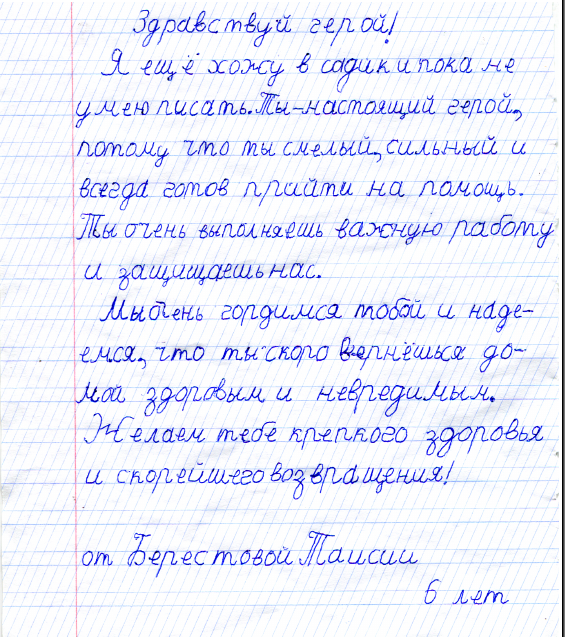 Здравствуй герой!
Я ещё хожу в садик и пока не
умею писать. Ты-настоящий герой,
потому что ты смелый, сильный и
всегда готов прийти на помощь.
Ты очень выполняешь важную работу
и защищаешь нас.
Мы очень гордимся тобой и наде-
емся, что ты скоро вернёшься до-
мой здоровым и невредимым.
Желаем тебе крепкого здоровья
и скорейшего возвращения!
от Берестовой Таисии
6 лет